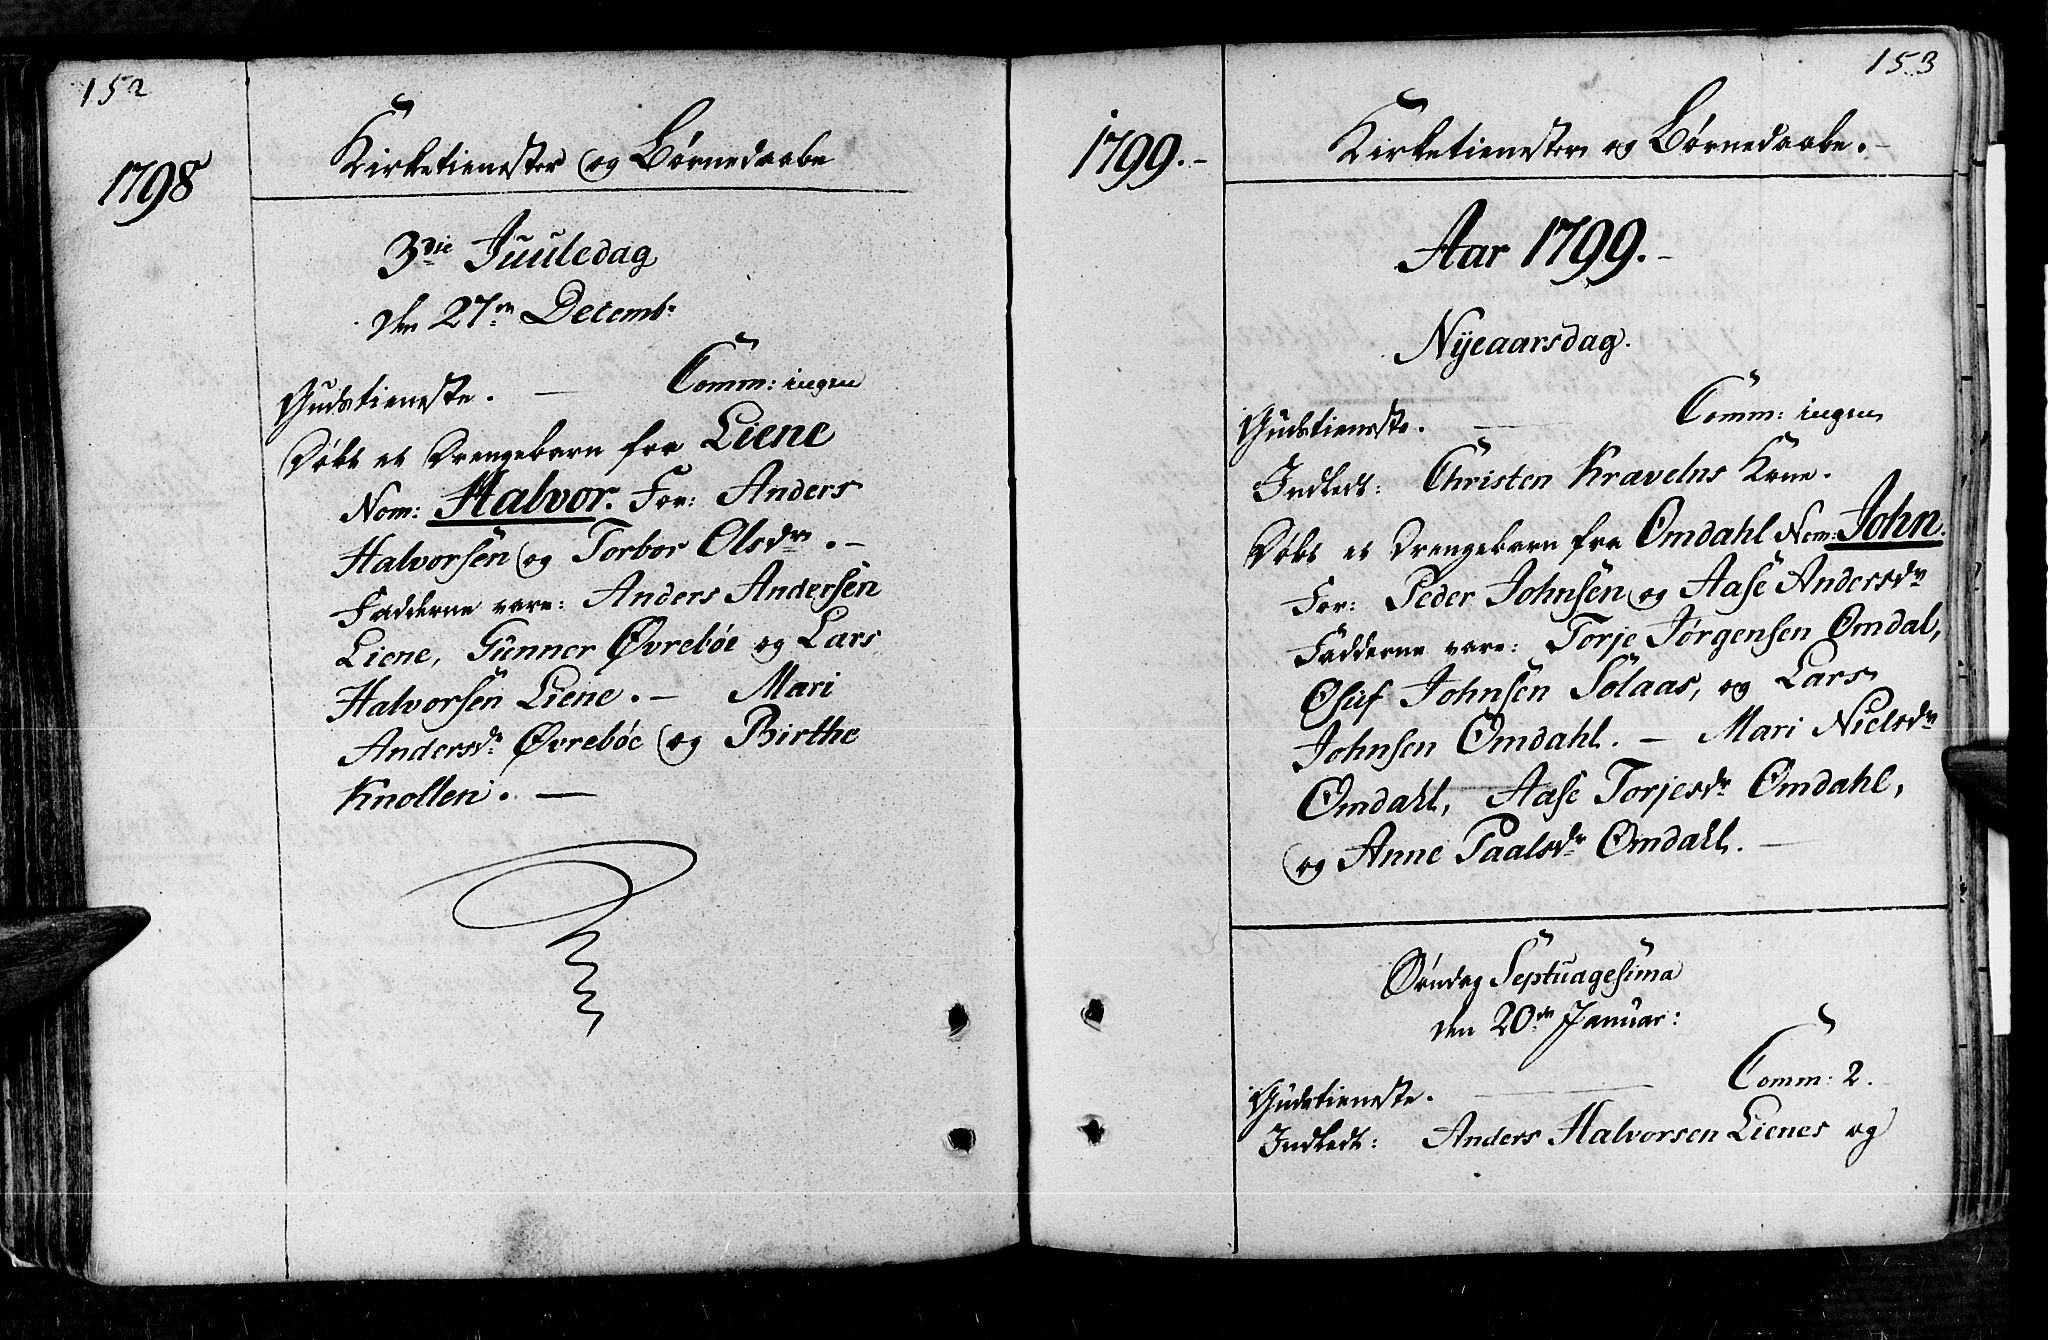 152
1798
Kirketienester og Børnedaabe
3die Juuledag
den 27de Decembr
Gudstieneste. — Comm: ingen
Døbt et Drengebarn fra Liene
Nom: Halvor. For: Anders
Halvorsen og Torbor Olsdr. —
Fadderne vare: Anders Andersen
Liene, Gunner Øvrebøe og Lars
Halvorsen Liene. — Mari
Andersdr Øvrebøe og Birthe
Knollen. —
153
1799. —
Kirketienester og Børnedaabe. —
Aar 1799. —
Nyeaarsdag.
Gudstieneste. — Comm: ingen
Indledt: Christen Kravelns Kone.
Døbt et Drengebarn fra Omdahl Nom: John.
For: Peder Johnsen og Aase Andersdr
Fadderne vare: Torje Jørgensen Omdal,
Osuf Johnsen Solaas, og Lars
Johnsen Omdahl. — Mari Nielsdr
Omdahl, Aase Torjesdr Omdahl,
og Anne Paalsdr Omdahl. —
Søndag Septuagesima
den 20de Januar:
Gudstieneste. — Comm: 2.
Indledt: Anders Halvorsen Lienes og